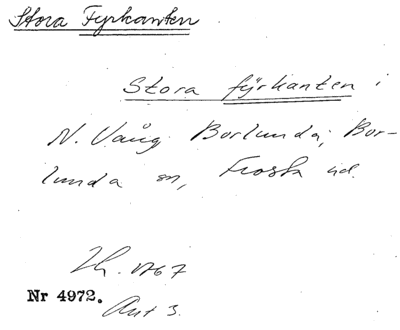 Stora Fyrkanten
Stora fÿrkanten i
N. Vång Borlunda; Bor-
lunda sn, Frosta hd.
Lh. 1767
Nr 4972.
Akt 3.